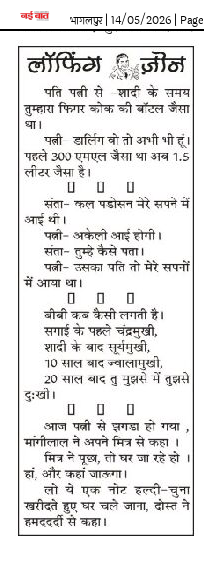 नई बात
भागलपुर | 14/05/2026 | Page
लॉफिंग ज़ोन
पति पत्नी से -शादी के समय
तुम्हारा फिगर कोक की बॉटल जैसा
था।
पत्नी- डार्लिंग वो तो अभी भी हूं।
पहले 300 एमएल जैसा था अब 1.5
लीटर जैसा है।
संता- कल पडोसन मेरे सपने में
आई थी।
पत्नी- अकेली आई होगी।
संता- तुम्हे कैसे पता।
पत्नी- उसका पति तो मेरे सपनों
में आया था।
बीबी कब कैसी लगती है।
सगाई के पहले चंद्रमुखी,
शादी के बाद सूर्यमुखी,
10 साल बाद ज्वालामुखी,
20 साल बाद तु मुझसे में तुझसे
दुःखी।
आज पत्नी से झगडा हो गया ,
मांगीलाल ने अपने मित्र से कहा ।
मित्र ने पूछा, तो घर जा रहे हो ।
हां, और कहां जाऊंगा।
लो ये एक नोट हल्दी-चुना
खरीदते हुए घर चले जाना, दोस्त ने
हमददर्दी से कहा।